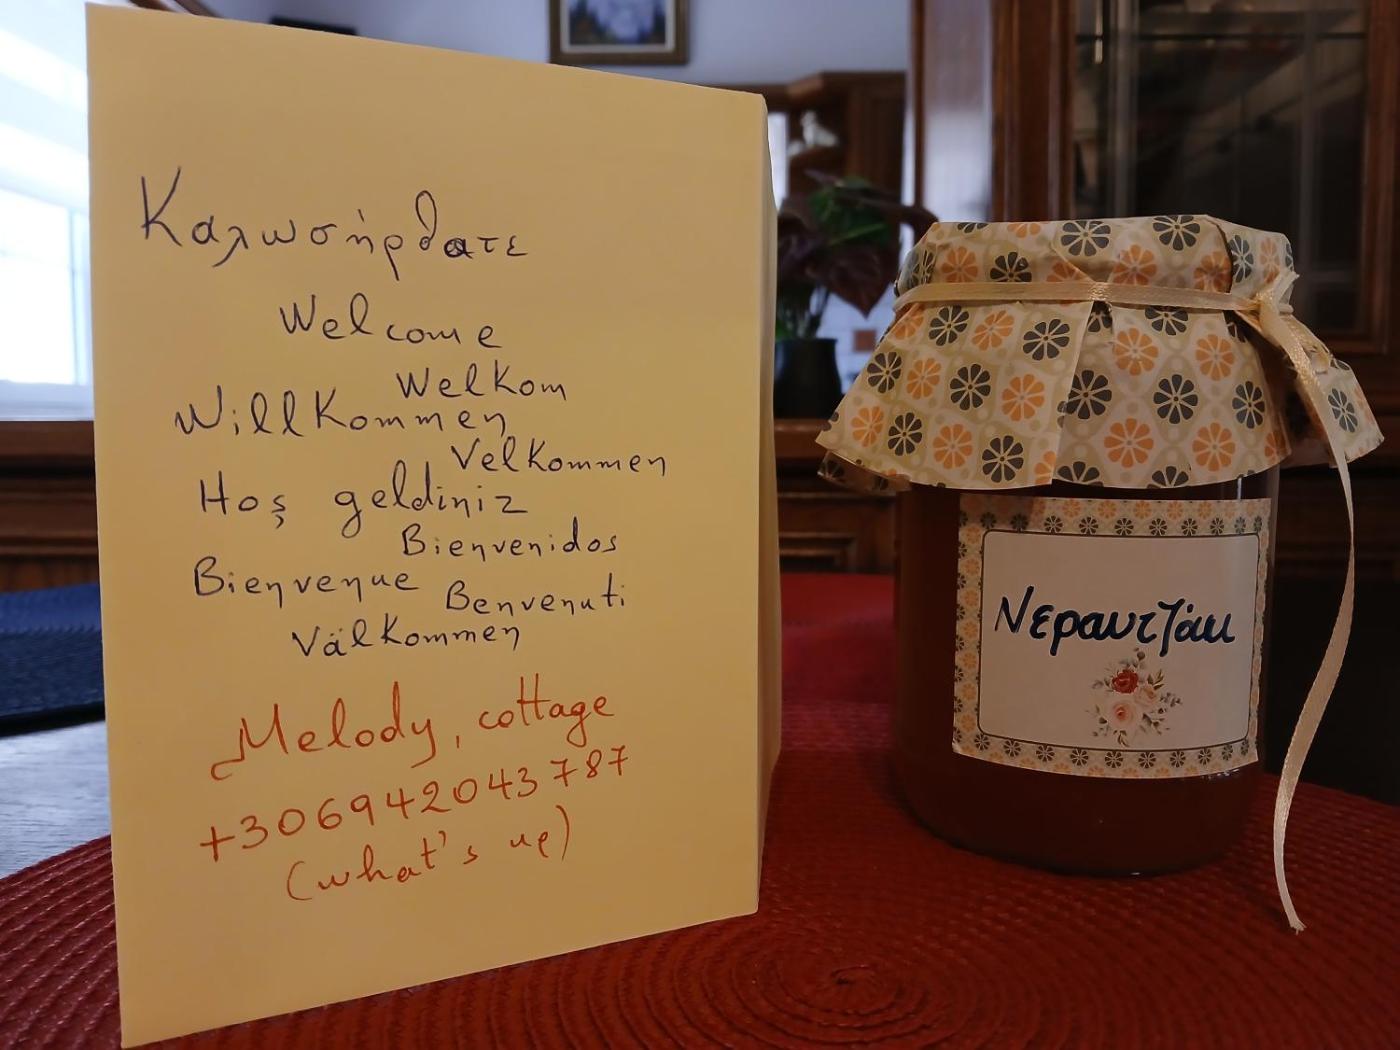 Καλωσήρθατε
Welcome
Welkom
Willkommen
Velkommen
Hoş geldiniz
Bienvenidos
Bienvenue
Benvenuti
Välkommen
Melody, cottage
+306942043787
(what's up)
Νεραντζάκι